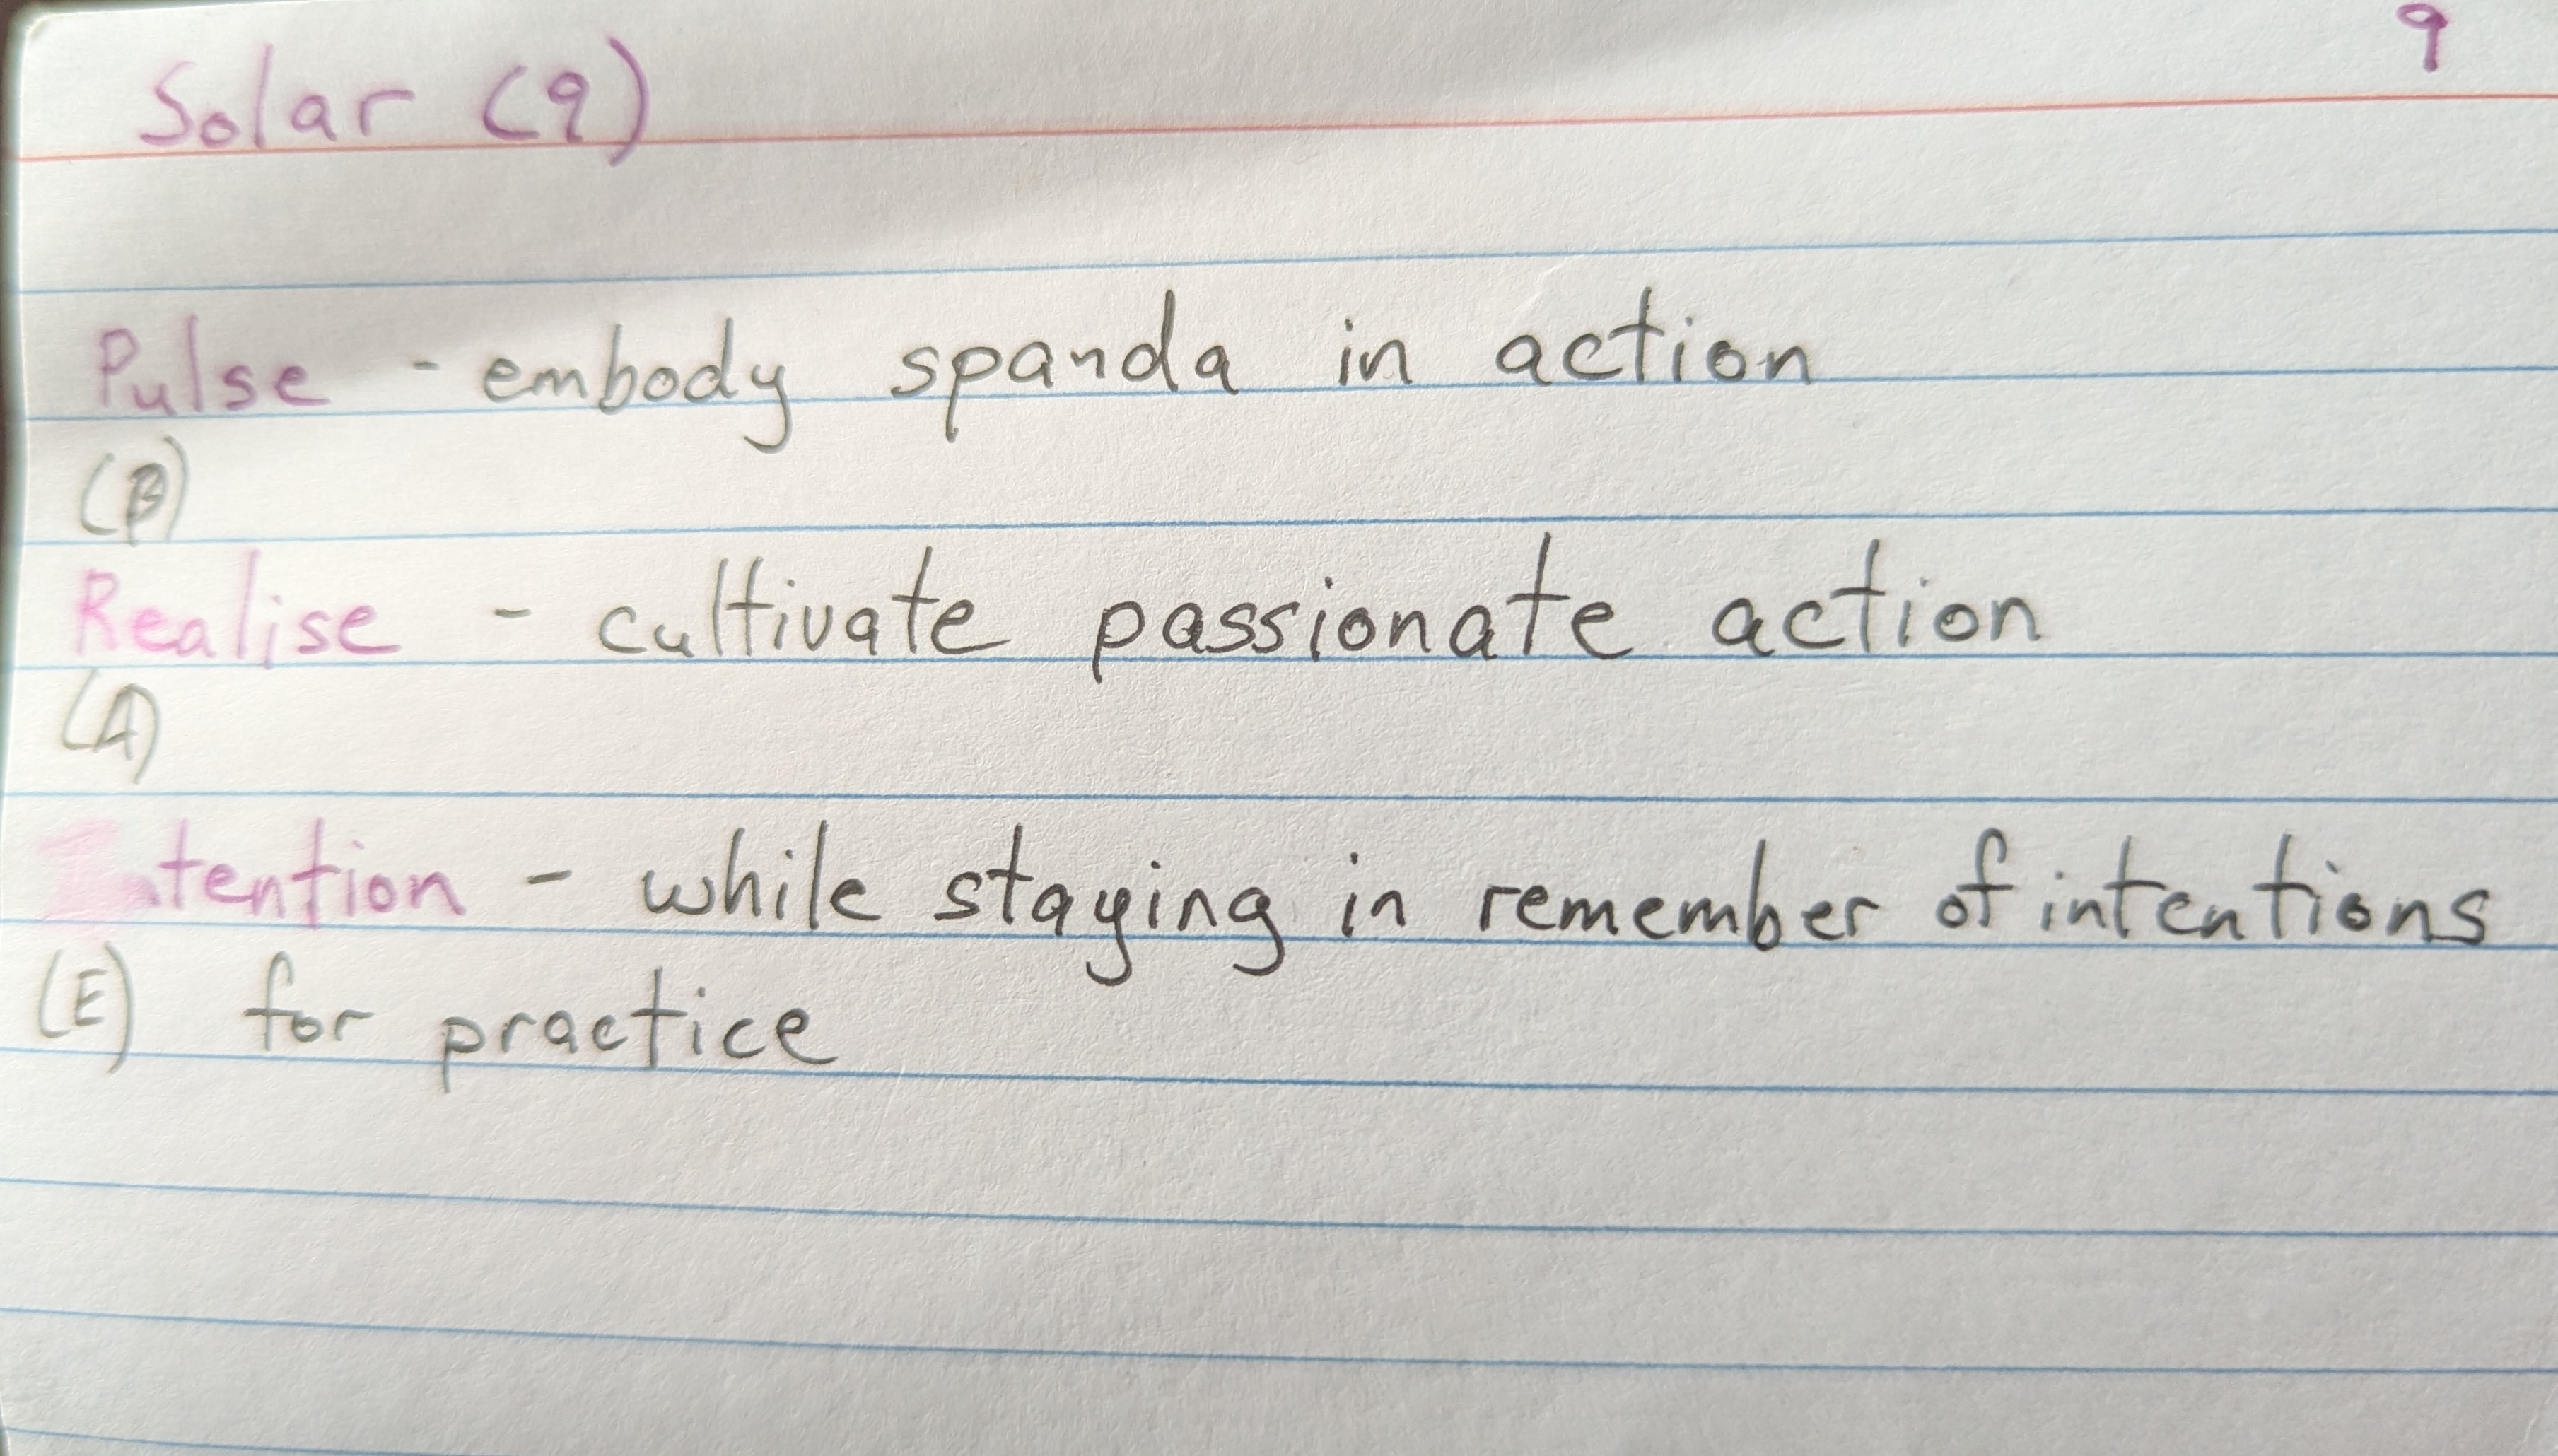 Solar (9) 9
Pulse - embody spanda in action
(B)
Realise - cultivate passionate action
(A)
Intention - while staying in remember of intentions
(E) for practice